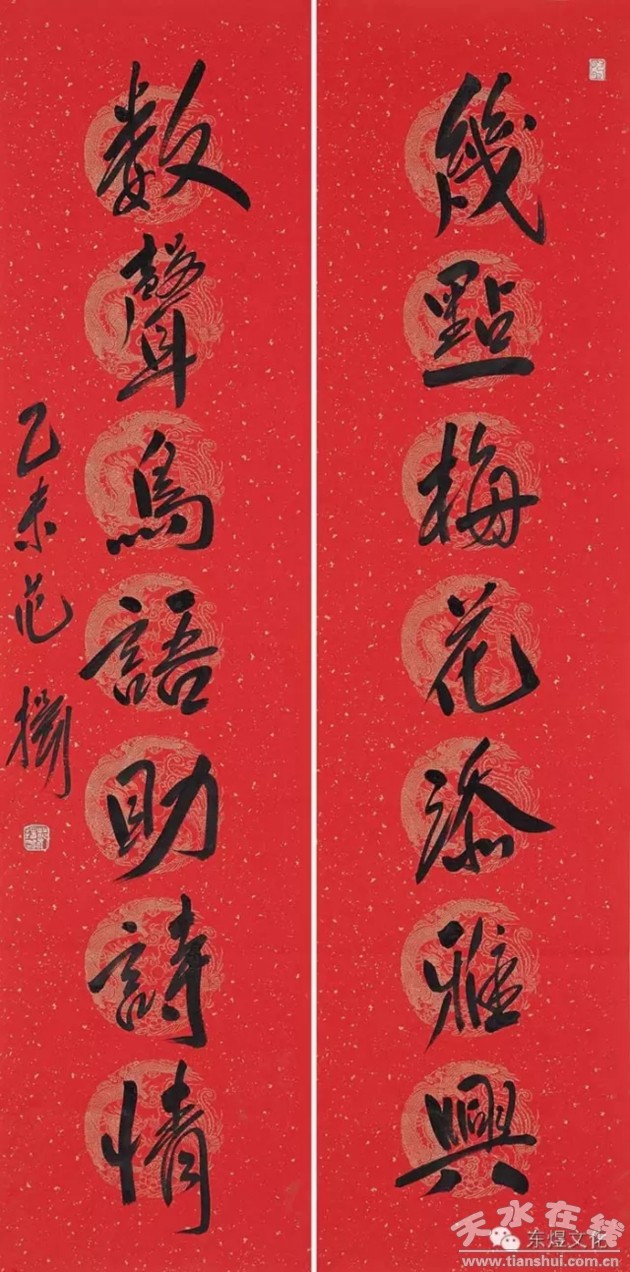 幾點梅花添雅興
数聲鳥語助詩情
乙未范
天水在线
东煜文化
www.tianshui.com.cn